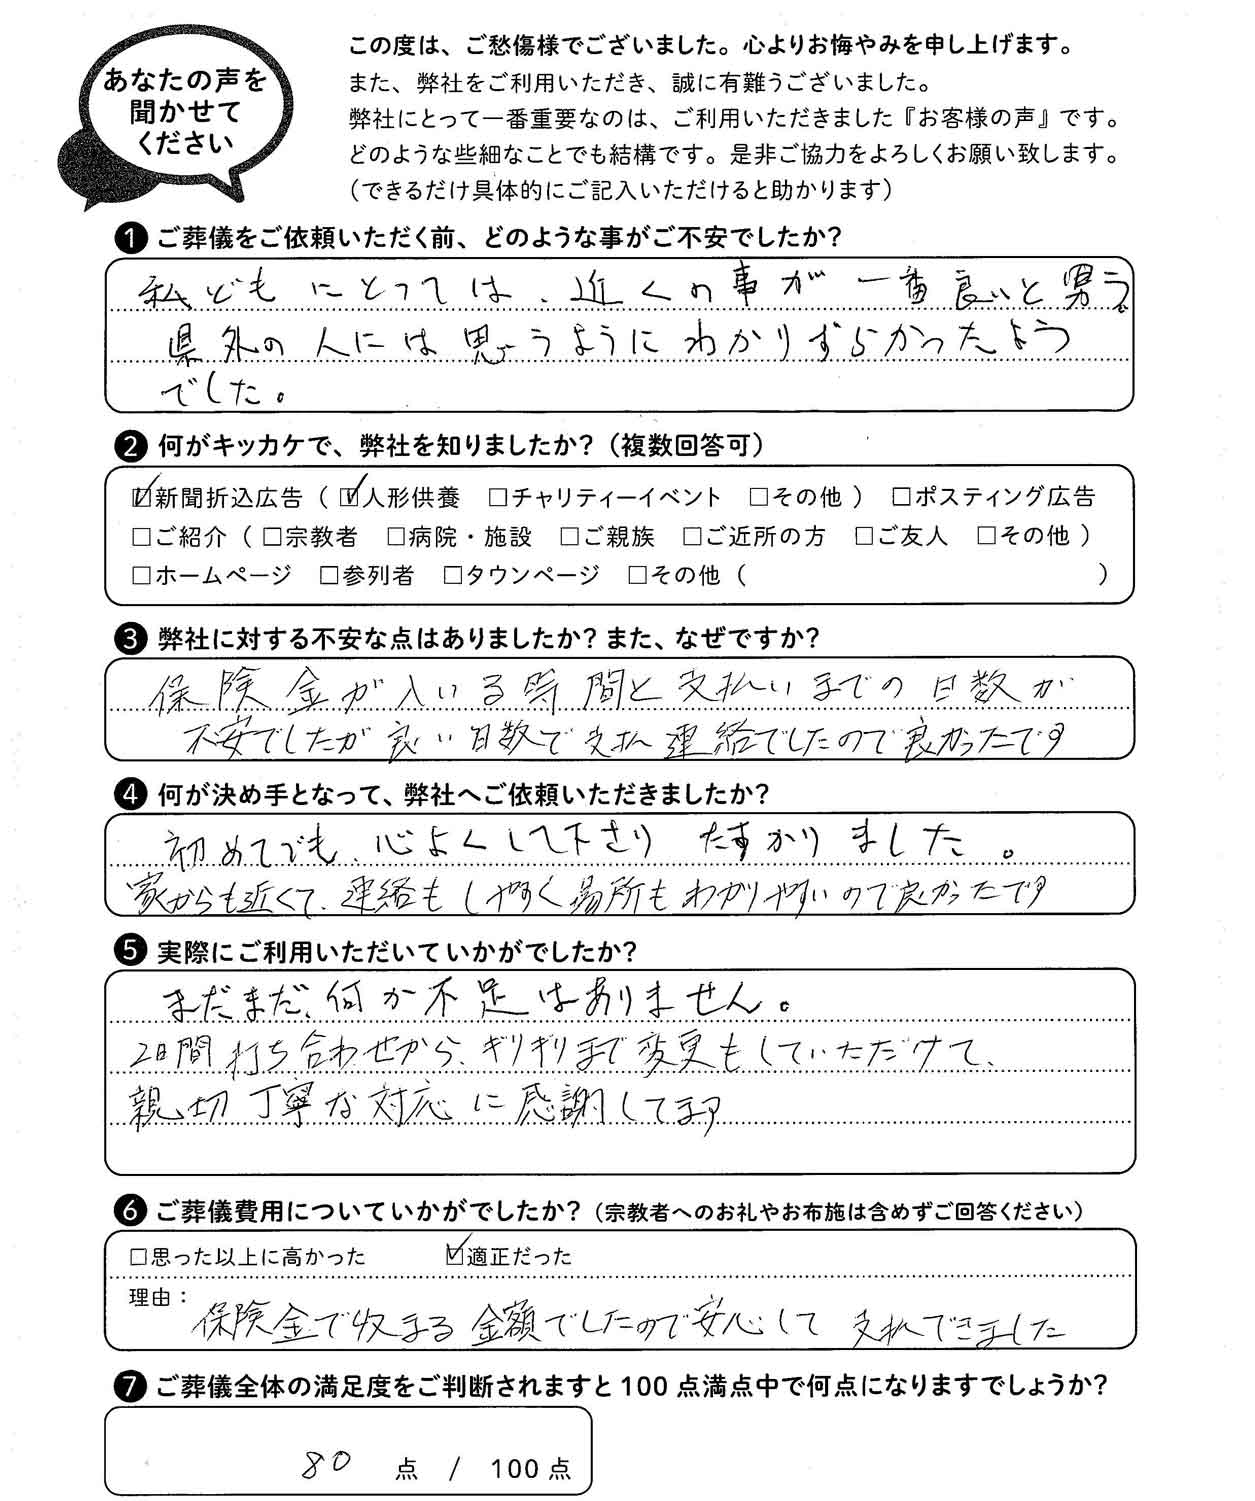 あなたの声を
聞かせて
ください
この度は、ご愁傷様でございました。心よりお悔やみを申し上げます。
また、弊社をご利用いただき、誠に有難うございました。
弊社にとって一番重要なのは、ご利用いただきました『お客様の声』です。
どのような些細なことでも結構です。是非ご協力をよろしくお願い致します。
（できるだけ具体的にご記入いただけると助かります）
❶ ご葬儀をご依頼いただく前、どのような事がご不安でしたか？
私どもにとっては、近くの事が一番良いと思う。
県外の人には思うようにわかりずらかったよう
でした。
❷ 何がキッカケで、弊社を知りましたか？（複数回答可）
☑新聞折込広告（☑人形供養 □チャリティーイベント □その他） □ポスティング広告
□ご紹介（□宗教者 □病院・施設 □ご親族 □ご近所の方 □ご友人 □その他）
□ホームページ □参列者 □タウンページ □その他（ ）
❸ 弊社に対する不安な点はありましたか？また、なぜですか？
保険金が入いる時間と支払いまでの日数が
不安でしたが良い日数で支払連絡でしたので良かったです
❹ 何が決め手となって、弊社へご依頼いただきましたか？
初めてでも、心よくして下さり たすかりました。
家からも近くて、連絡もしやすく場所もわかりやすいので良かったです
❺ 実際にご利用いただいていかがでしたか？
まだまだ、何か不足はありません。
2日間打ち合わせから、ギリギリまで変更もしていただけて、
親切丁寧な対応に感謝してます
❻ ご葬儀費用についていかがでしたか？（宗教者へのお礼やお布施は含めずご回答ください）
□思った以上に高かった ☑適正だった
理由：
保険金で収まる金額でしたので安心して 支払できました
❼ ご葬儀全体の満足度をご判断されますと100点満点中で何点になりますでしょうか？
80 点 / 100点